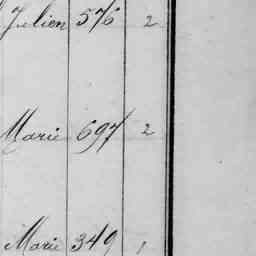 Julien 576 2
Marie 697 2
Marie 349 1